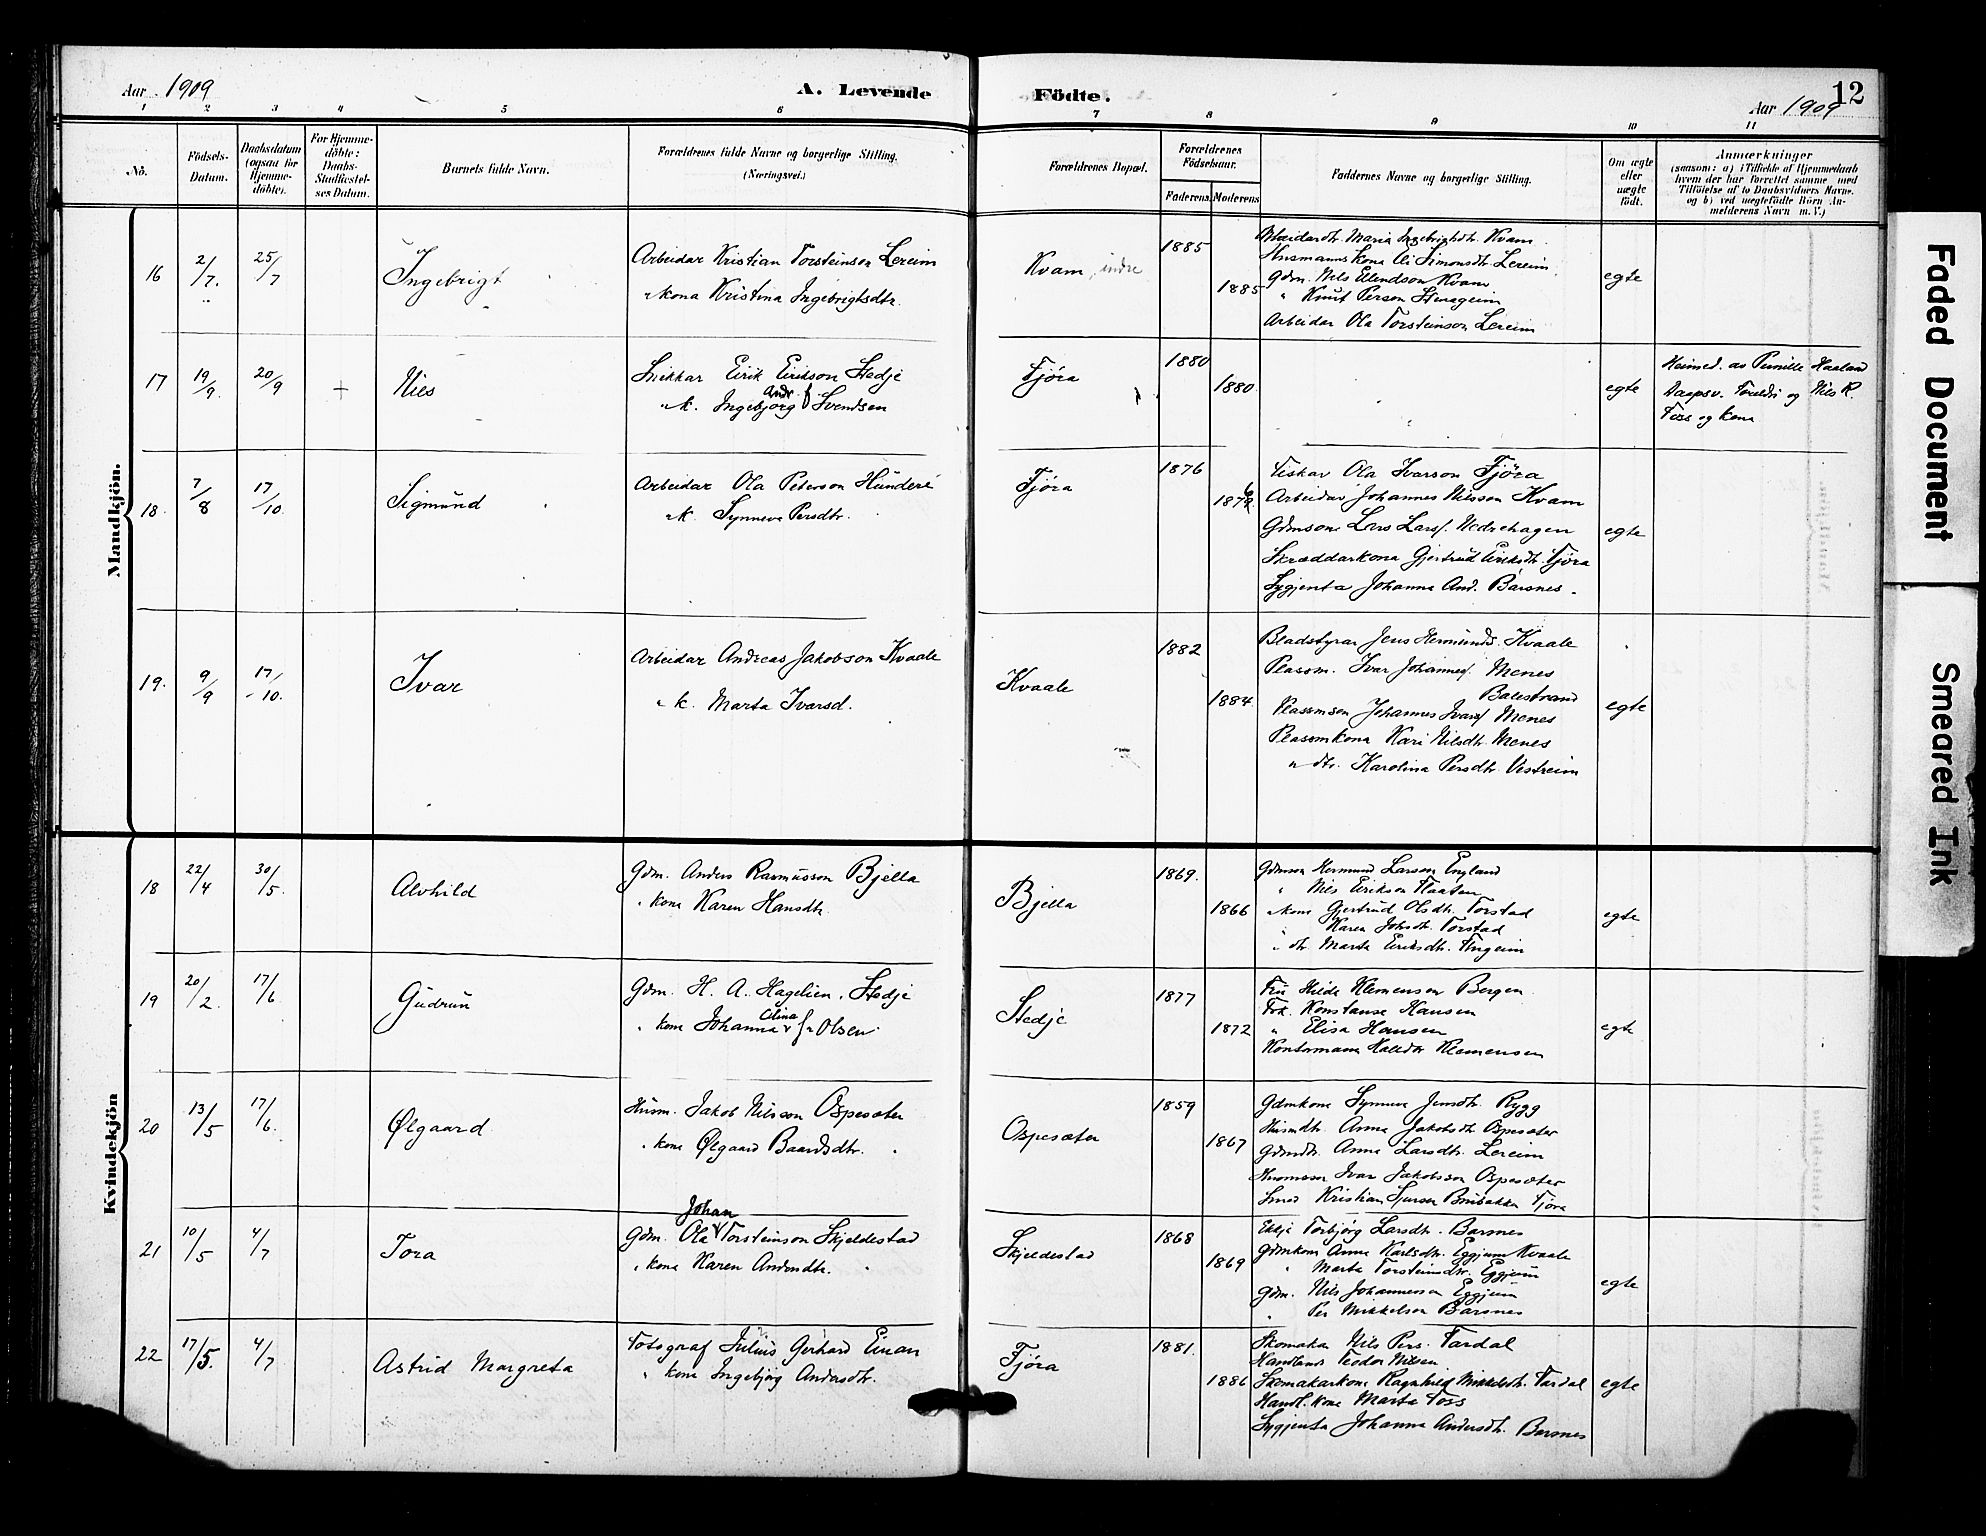 Aar 1909
A. Levende
Födte.
12
Aar 1909
1 2 3 4 5 6 7 8 9 10 11
No.
Födsels-
Datum.
Daabsdatum
(ogsaa for
Hjemme-
döbte).
For Hjemme-
döbte:
Daabs-
Stadfæstel-
ses Datum.
Barnets fulde Navn.
Forældrenes fulde Navne og borgerlige Stilling.
(Næringsvei.)
Forældrenes Bopæl.
Forældrenes
Födselsaar.
Faderens.
Moderens.
Faddernes Navne og borgerlige Stilling.
Om ægte
eller
uægte
födt.
Anmærkninger
(saasom: a) i Tilfælde af Hjemmedaab
hvem der har forrettet samme med
Tilföielse af to Daabsvidners Navne.
og b) ved uægtefödte Börn An-
melderens Navn m. V.)
Mandkjön.
16
2/7.
25/7
Ingebrigt
Arbeidar Kristian Torsteinson Lereim
" kona Kristina Ingebrigtsdtr.
Kvam, indre
1885
1885
Maria Ingebrigtsdtr. Kvam.
Husmannskona Eli Simonsdtr. Lereim
Gdm. Nils Ellendson Kvam
" Knut Person Stenageim
Arbeidar Ola Torsteinson Lereim
egte
17
19/9.
20/9
+
Nils
Snikkar Eirik Eirikson Stedje
Andr.
" k. Ingebjörg f. Svendsen
Fjøra
1880
1880.
egte
Heimed. av Pernille Haaland
Daapsv. Foreldri og Nils R.
Foss og kona
18.
7/8
17/10.
Sigmund
Arbeidar Ola Peterson Hundere
" k. Synneva Persdtr.
Fjøra
1876
Fiskar Ola Ivarson Fjøra
Arbeidar Johannes Nilsson Kvam
Gdmsone Lars Lars. Nedrehagen
Skræddarkona Gjertrud Eiriksdtr. Fjøra
Sygjenta Johanna And. Barsnes.
egte
19.
9/9
17/10.
Ivar
Arbeidar Andreas Jakobson Kvaale
" k. Marta Ivarsd.
Kvaale
1882
1884.
Bladstyrar Jens Hermunds. Kvaale
Plassm. Ivar Johannes. Menes
Balestrand
Plassmson Johannes Ivars. Menes
Plassmkona Kari Nilsdtr. Menes
" dtr. Karolina Persdtr. Vestreim
egte
Kvindekjön
18
22/4
30/5.
Alvhild
Gdm. Anders Rasmusson Bjella
" kona Karen Hansdtr.
Bjella
1869.
1866
Gdmson Hermund Larson England
" Nils Eirikson Flaaten
" kona Gjertrud Olsdtr. Torstad
" Karen Johsdtr. Torstad
" dtr. Marta Eiriksdtr. Ungeim
egte
19
20/2.
17/6.
Gudrun
Gdm. H. A. Hagelien, Stedje
Olina
" kona Johanna f. Olsen.
Stedje
1877
1872
Fru Hilda Klemensen Bergen.
Frk. Konstanse Hansen
" Elisa Hansen
Kontormann Halldor Klemensen
egte
20
13/5
17/6.
Ølgaard.
Husm. Jakob Nilsson Ospesæter
" kona Ølgaard Baardsdtr.
Ospesæter
1859
1867
Gdmkona Synneva Jensdtr. Rygg
Husmdtr. Anna Jakobsdtr. Ospesæter
Gdmdtr. Anna Larsdtr. Lereim
Husmsson Ivar Jakobsson Ospesæter
Smed Kristian Sjurson Brubakken Fjøra
21
10/5
4/7
Tora
Johan
Gdm. Ola Torsteinson Skjeldestad
" kona Karen Andersdtr.
Skjeldestad
1868
1869
Ekkja Torbjørg Larsdtr. Barsnes
Gdmkona Anna Karlsdtr. Eggjum Kvaale
" Marta Torsteinsdtr. Eggjum
Gdm. Nils Johannesson Eggjum
" Per Mikkelson Barsnes
egte
22
17/5.
4/7
Astrid Margreta
Fotograf Julius Gerhard Einan
" kona Ingebjørg Andersdtr.
Fjøra
1881.
1886
Skomakar Nils Pers. Tardal
Handlande Teodor Nilsen
Skomakarkona Ragnhild Mikkelsdtr. Tardal
Handl. kona Marta Foss
Sygjenta Johanna Andersdtr. Barsnes
egte
Faded Document
Smeared Ink